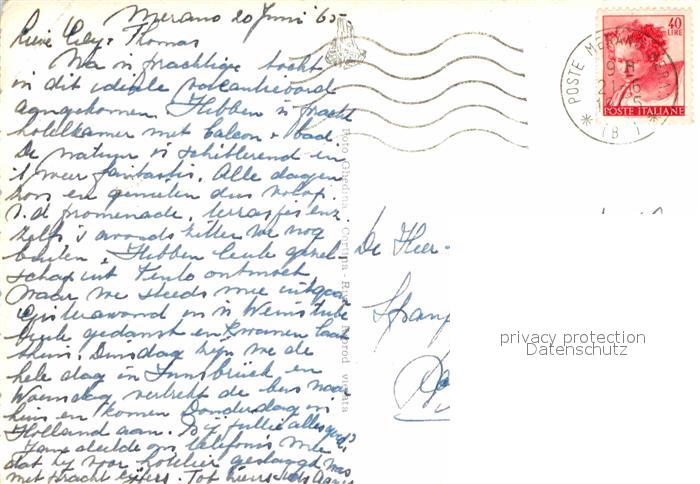 Merano 20 Juni '65
Lieve Cely + Thomas
Na 'n prachtige tocht
in dit ideale vacantieoord
aangekomen. Hebben 'n pracht
hotelkamer met balcon + bad.
De natuur is schitterend en
't weer fantastis. Alle dagen
zon en genieten dus volop.
o.d promenade, terrasjes enz
zelfs 's avonds zitten we nog
buiten. Hebben leuk gezel
schap uit Venlo ontmoet
waar we steeds mee uitgaan
Gisteravond in 'n Weinstube
leuk gedanst en kwamen laat
thuis. Dinsdag zijn we de
hele dag in Innsbrück en
Woensdag vertrekt de bus naar
huis en komen Donderdag in
Holland aan. Is bij jullie alles goed?
deelde ons telefonis mee
dat hij voor hotelier geslaagd was
met pracht cijfers. Tot
De Heer
Foto Ghedina - Cortina - vietata
POSTE MERANO
21 · 6
(B )
40
LIRE
POSTE ITALIANE
privacy protection
Datenschutz